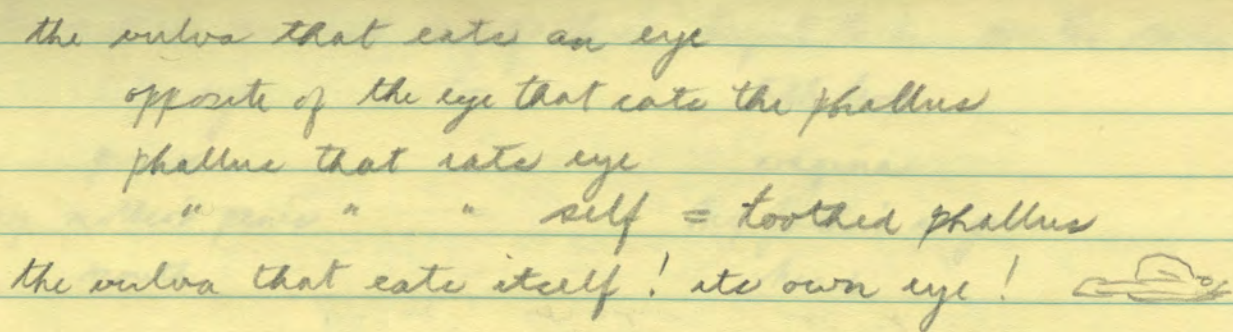 the vulva that eats an eye
opposite of the eye that eats the phallus
phallus that eats eye
" " " self = toothed phallus
the vulva that eats itself! its own eye!